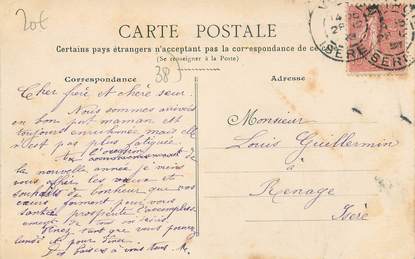 20€
CARTE POSTALE
Certains pays étrangers n'acceptent pas la correspondance de ce
(Se renseigner à la Poste)
38
Correspondance
Adresse
Cher frère et chère sœur.
Nous sommes arrivés
en bon port maman est
toujours enrhumée mais elle
n'est pas plus fatiguée.
l'occasion
la nouvelle année je viens
vous les vœux et
souhaits de bonheur que nos
cœurs forment pour vous
santé prospérité
de tout
Venez tant que vous pourrez
pour
baisers à vous tous
Monsieur
Louis Guillermin
à
Renage
Isère
ISERE
ISERE